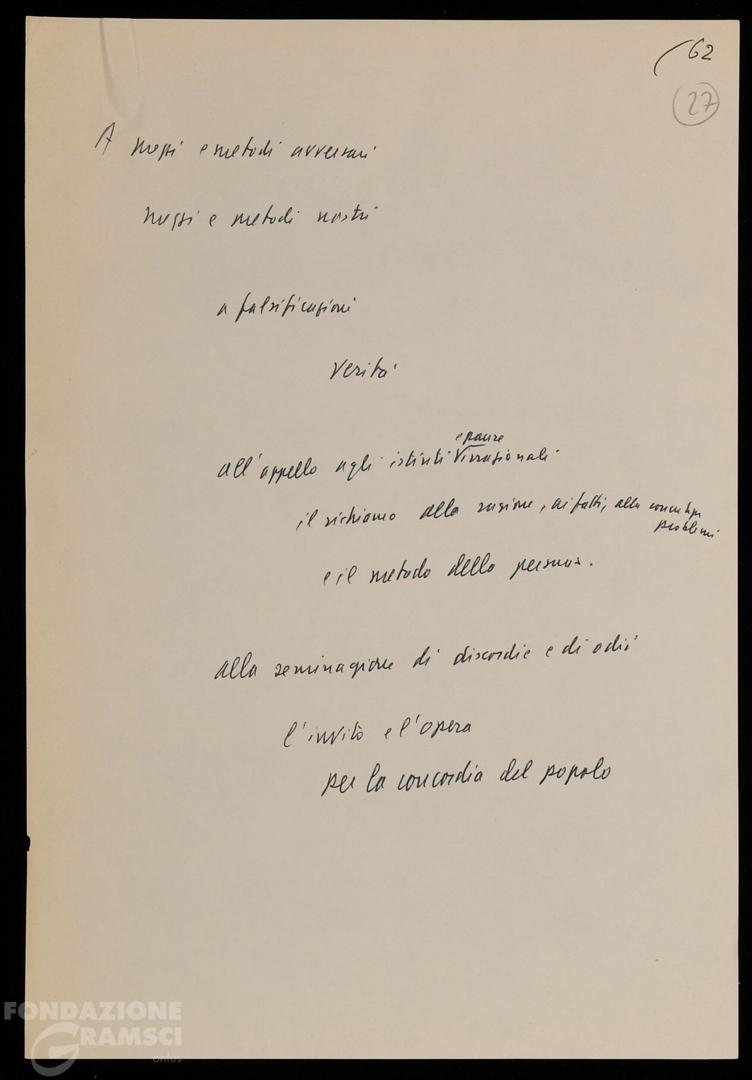 62
27
A mezzi e metodi avversari
mezzi e metodi nostri
a falsificazioni
verità
e paure
all'appello agli istinti irrazionali
il richiamo alla ragione, ai fatti, alla
problemi
e il metodo della persuas.
alla seminagione di discordie e di odii
l'invito e l'opera
per la concordia del popolo
FONDAZIONE
GRAMSCI
onlus